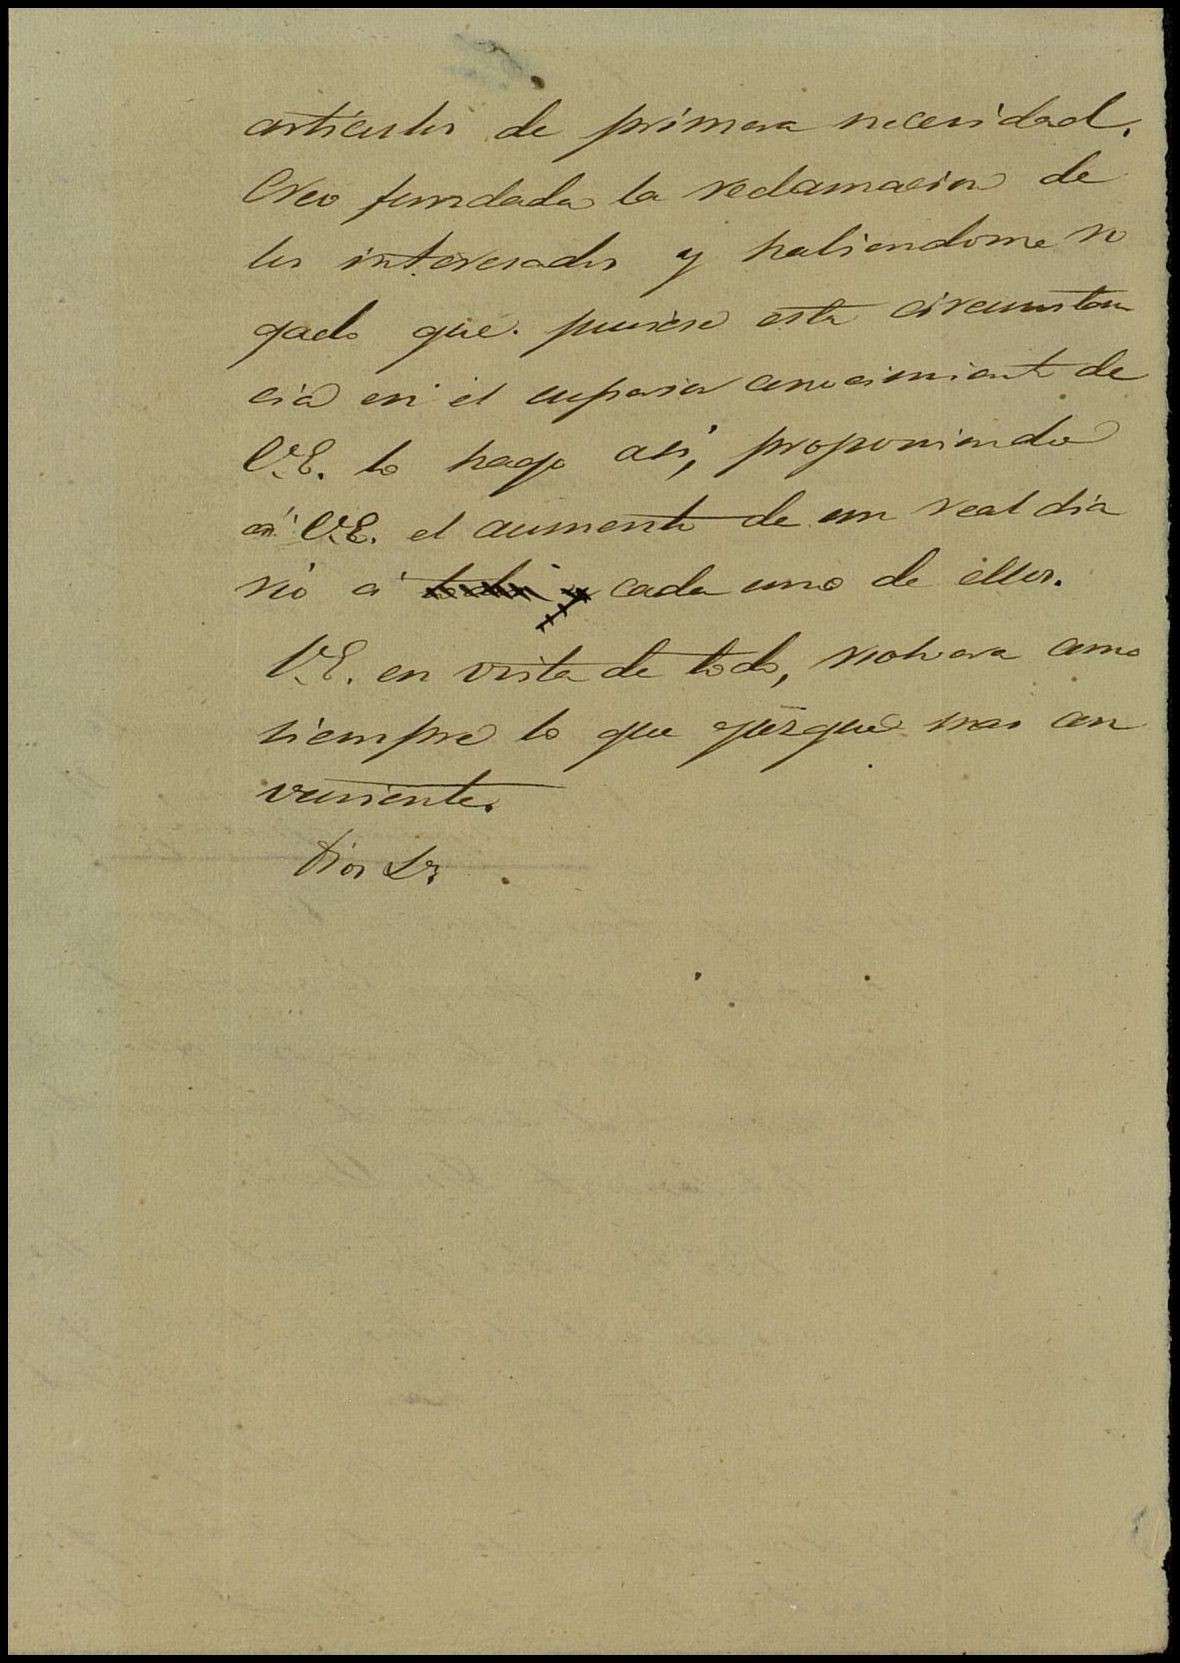 articulos de primera necesidad.
Creo fundada la reclamacion de
los interesados y habiendome ro
gado que pusiese esta circunstan
cia en el superior conocimiento de
V.E. lo hago asi, proponiendo
á V.E. el aumento de un real dia
rio á cada uno de ellos.
V.E. en vista de todo, resolvera como
siempre lo que juzgue mas con
veniente.
Dios &.